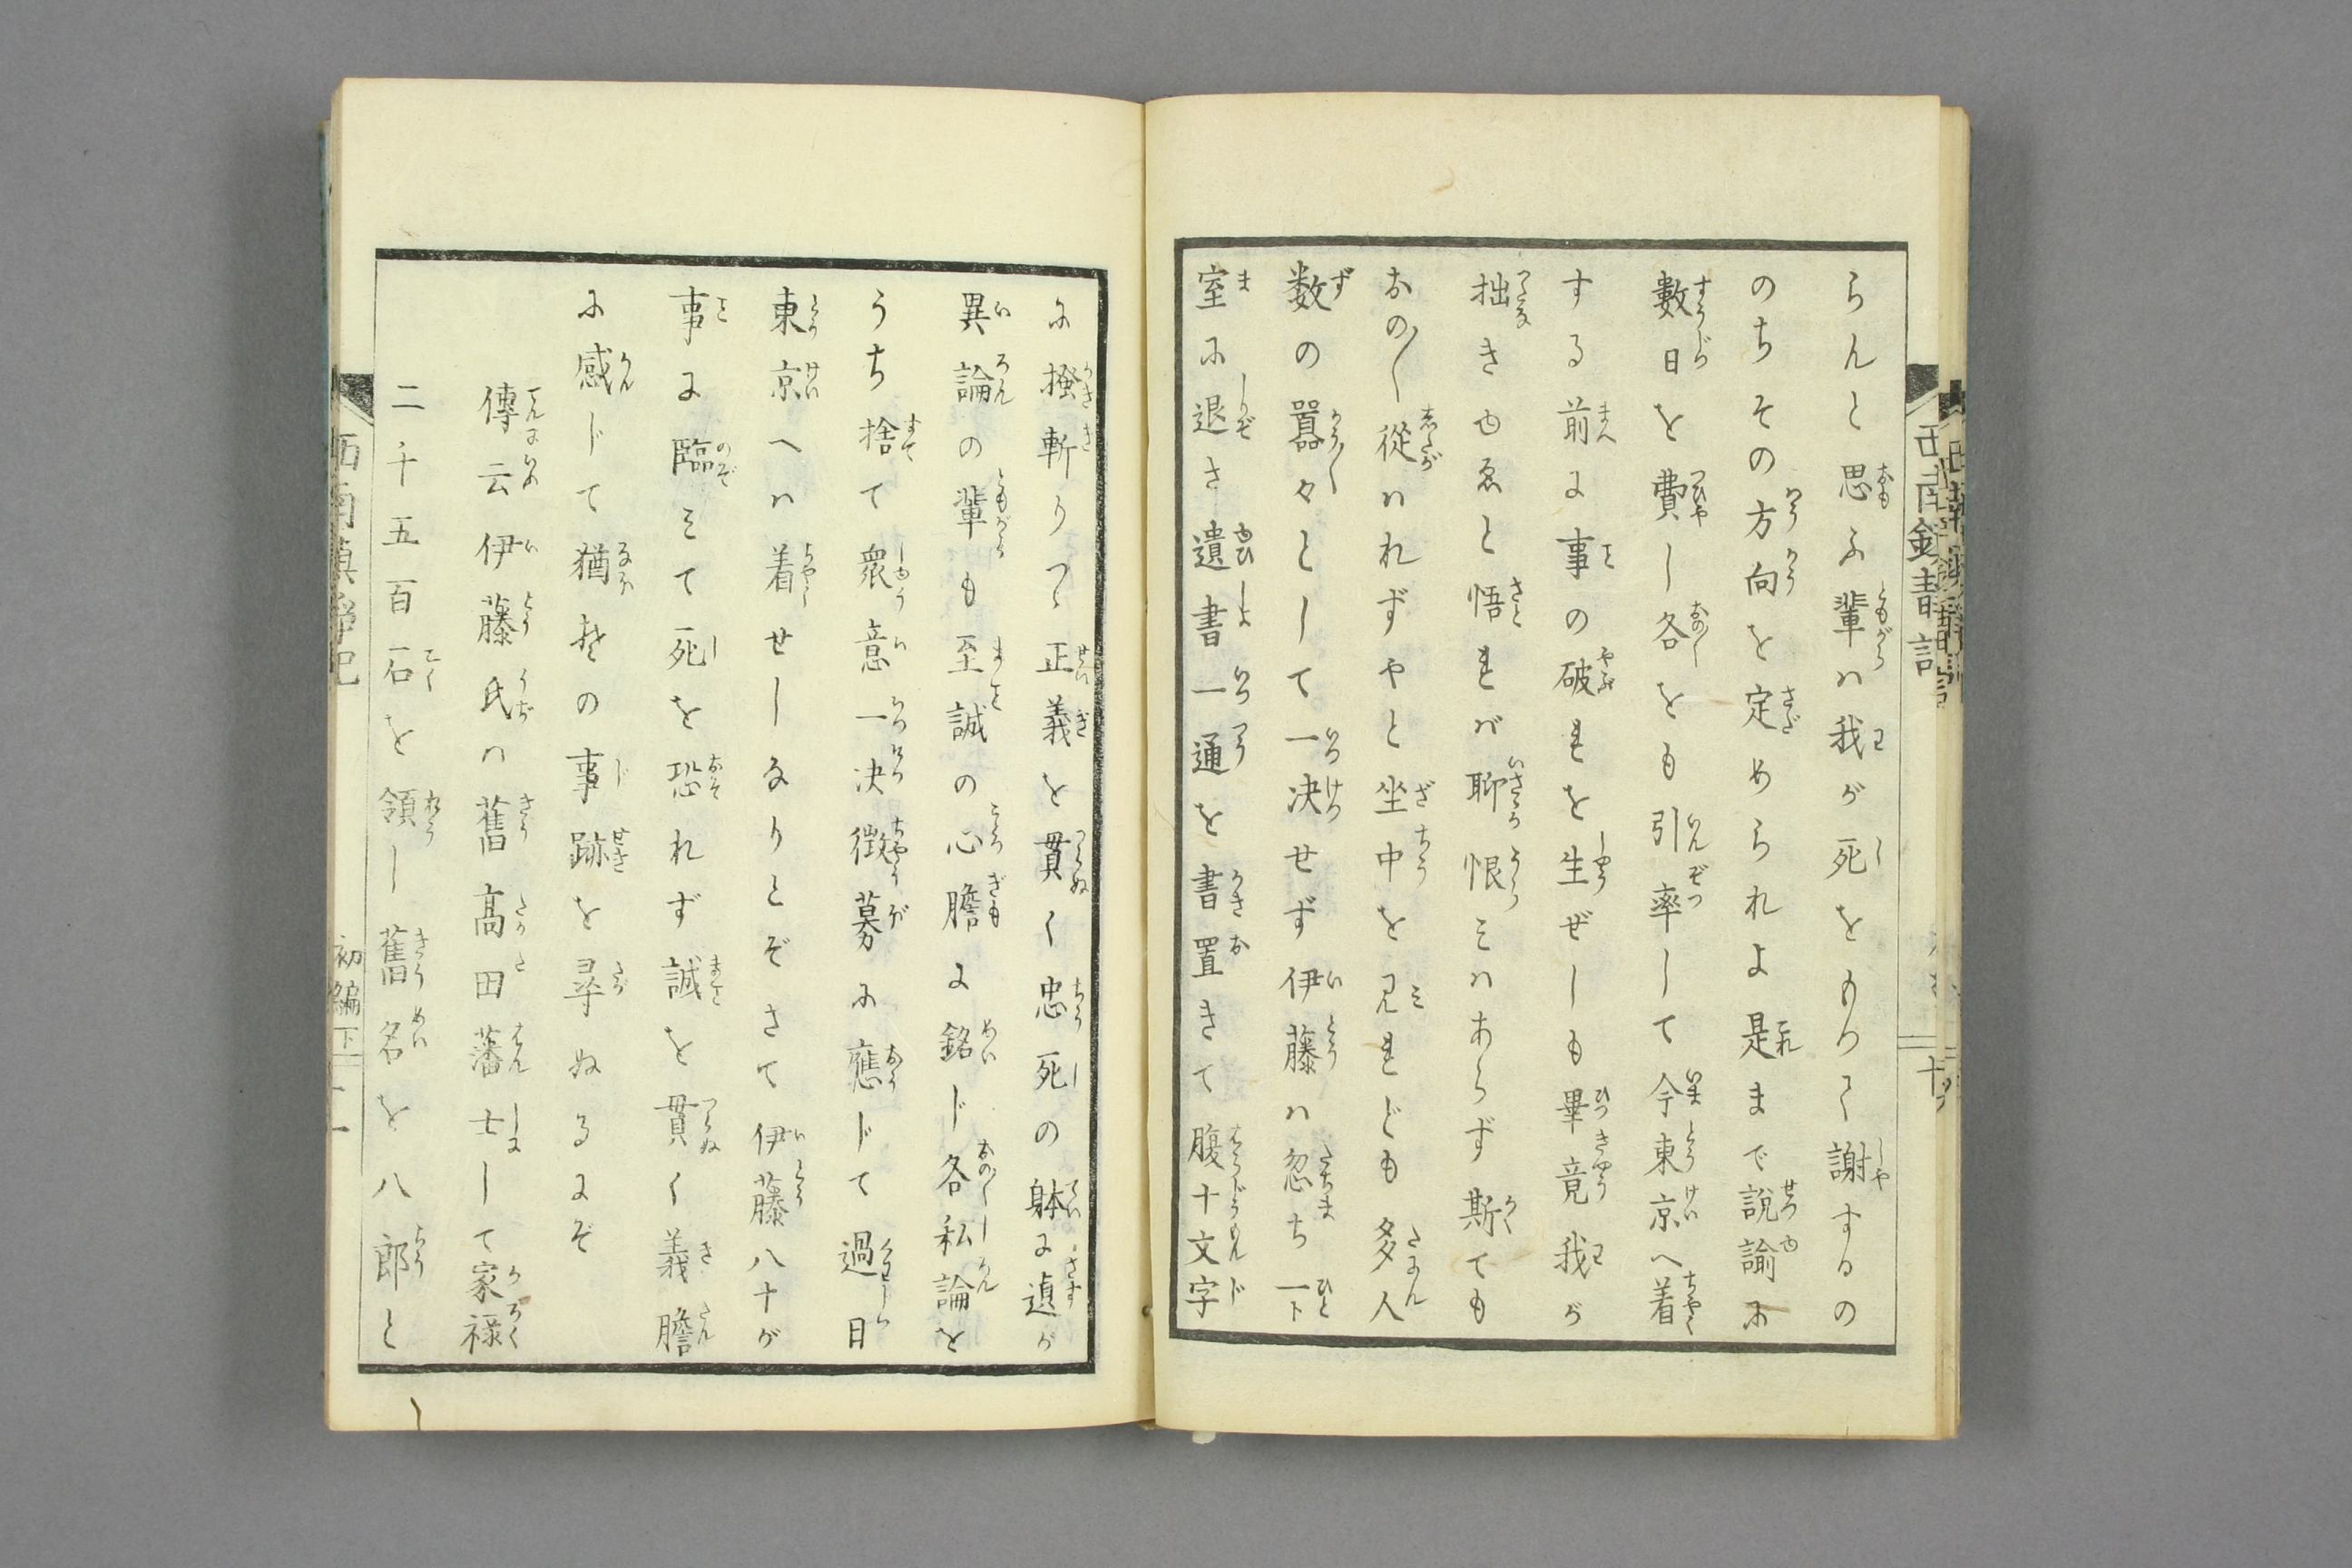 らんと思ふ輩ハ我が死をもつて謝するの
のちその方向を定められよ是まで説諭に
數日を費し各〻をも引率して今東京へ着
する前に事の破れを生ぜしも畢竟我が
拙きゆゑと悟れバ聊恨ミハあらず斯ても
おの〳〵從ハれずやと坐中を見れども多人
数の囂々として一决せず伊藤ハ忽ち一ト
室に退き遺書一通を書置きて腹十文字
に搔斬りつゝ正義を貫く忠死の躰に遉が
異論の輩も至誠の心膽に銘じ各私論を
うち捨て衆意一决徴募に應じて過日
東京へハ着せしなりとぞさて伊藤八十が
事に臨ミて死を恐れず誠を貫く義膽
に感じて猶其の事跡を尋ぬるにぞ
傳云伊藤氏ハ舊高田藩士して家禄
二千五百石を領し舊名を八郎と
初編下